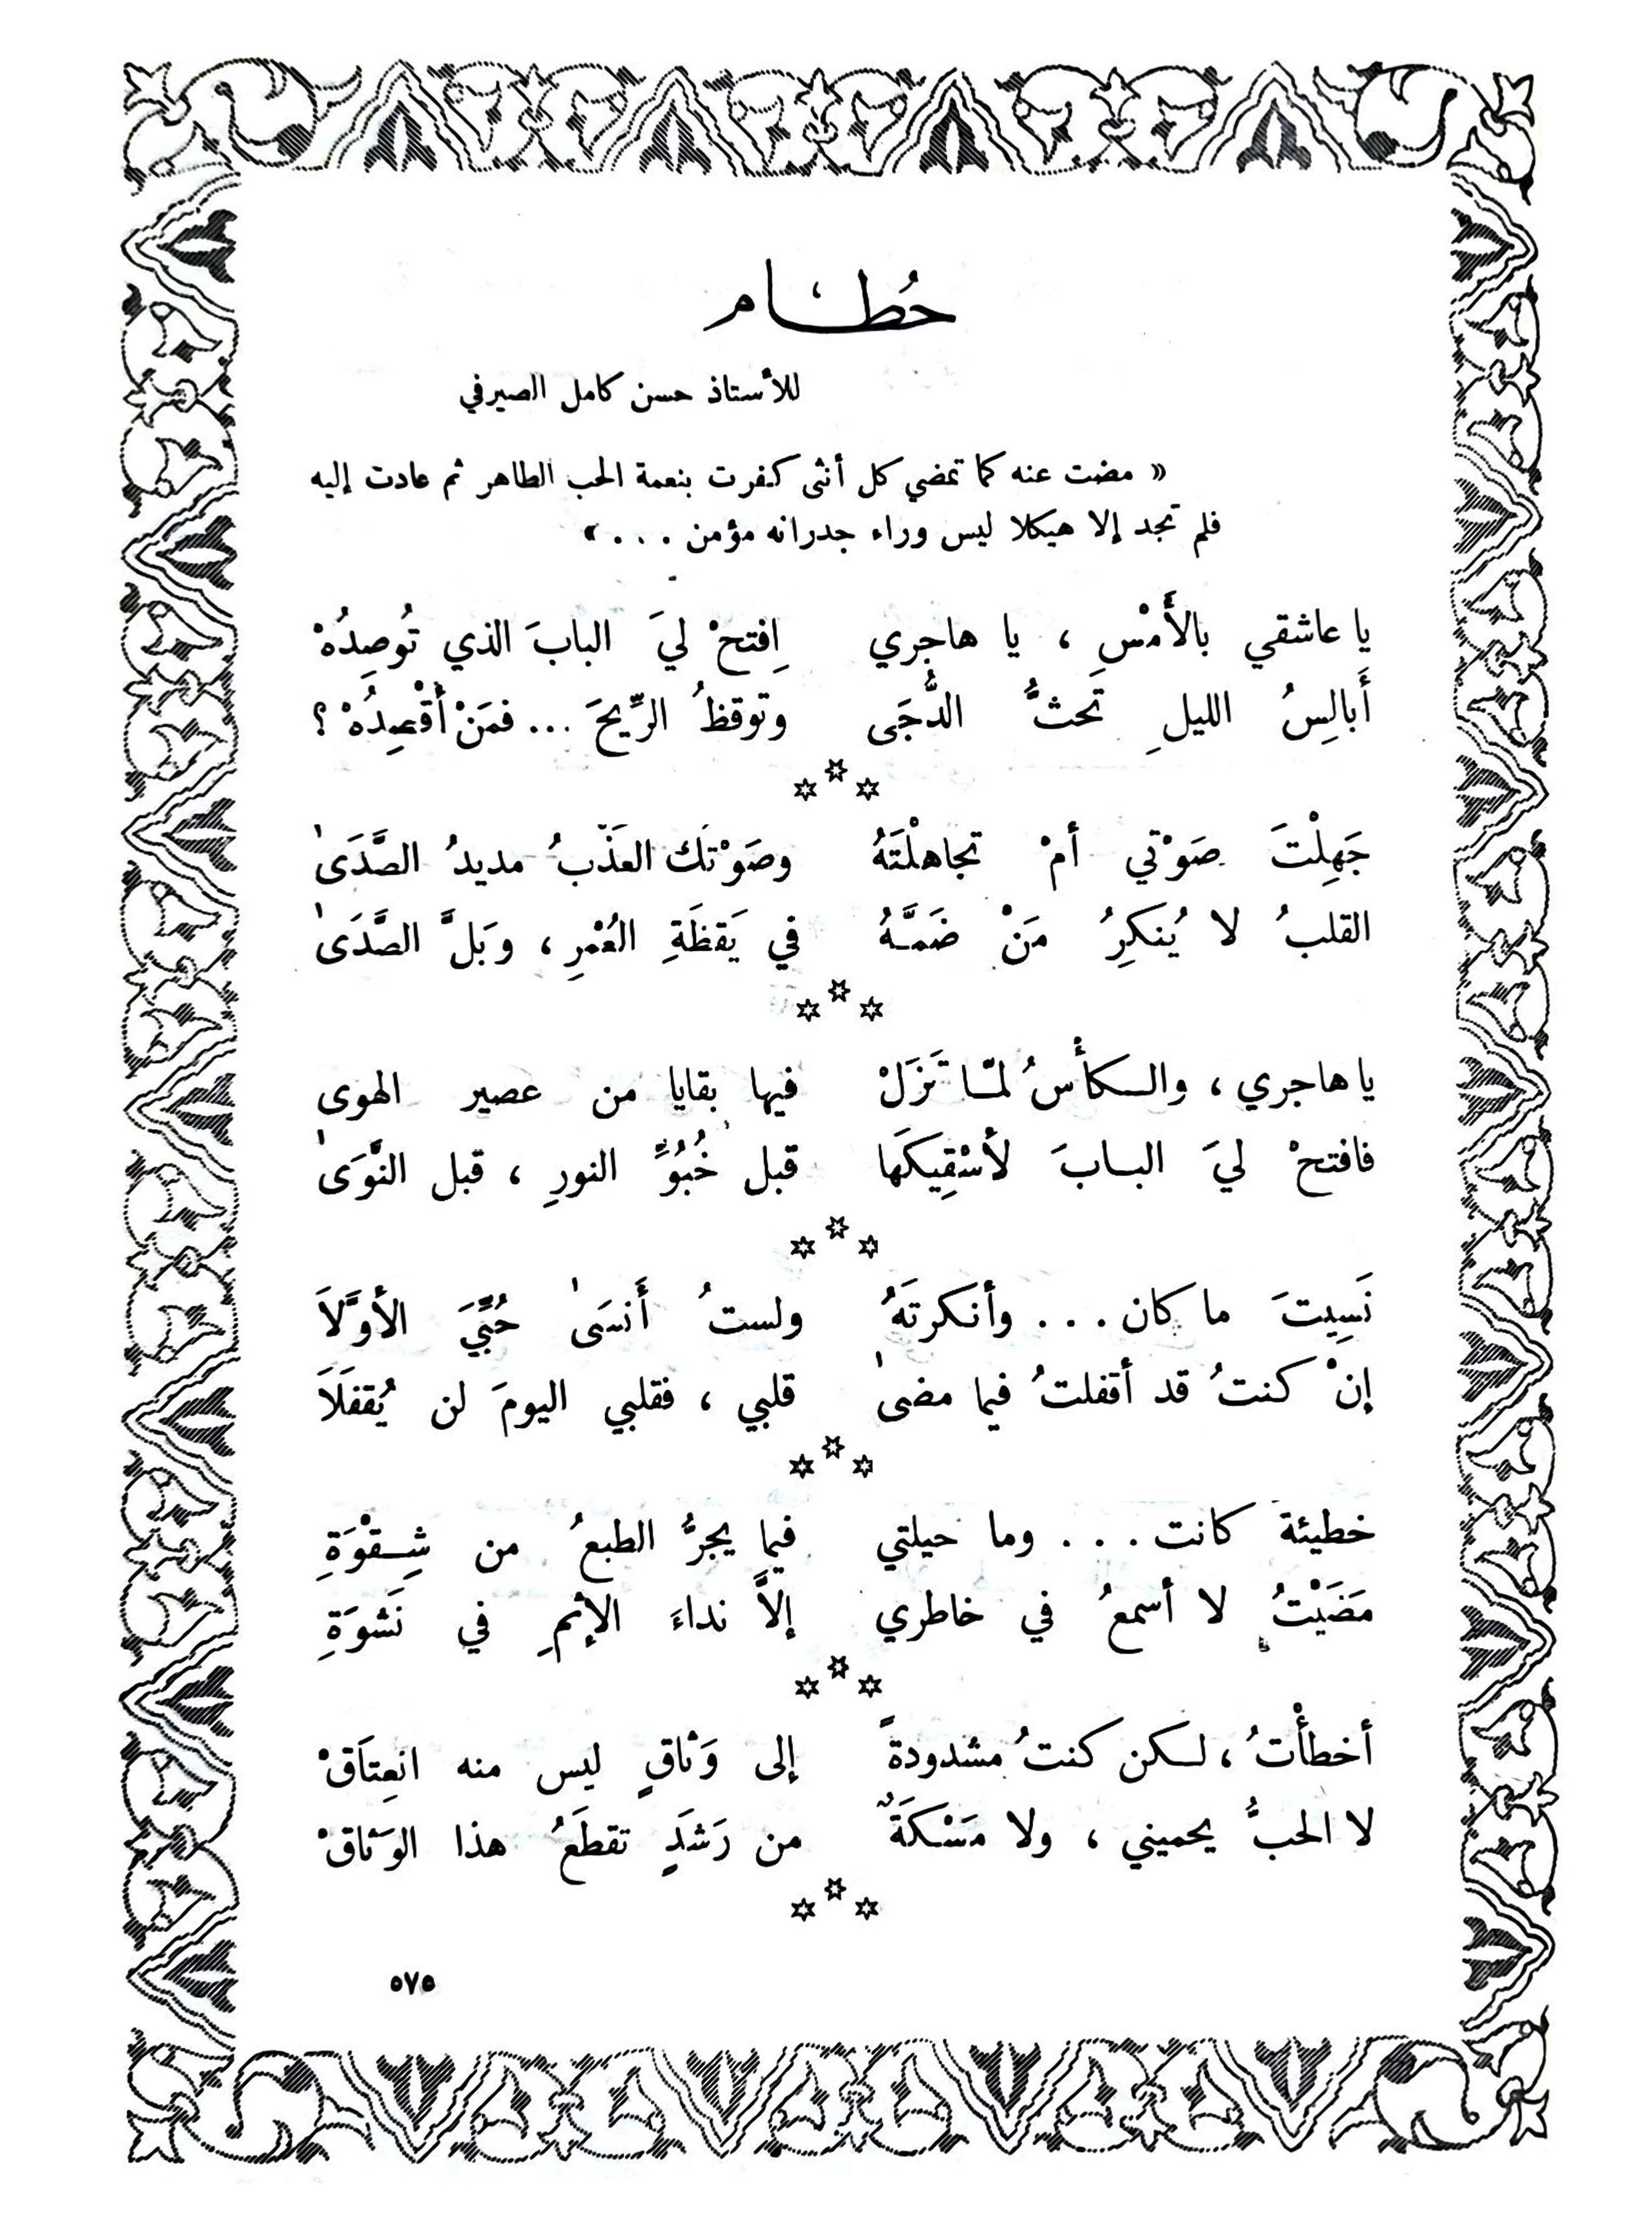 حُطام
للأستاذ حسن كامل الصيرفي
« مضت عنه كما تمضي كل أنثى كفرت بنعمة الحب الطاهر ثم عادت إليه
فلم تجد إلا هيكلا ليس وراء جدرانه مؤمن . . . »
يا عاشقي بالأَمْسِ ، يا هاجري اِفتحْ ليَ البابَ الذي تُوصِدُهْ
أَبالِسُ الليلِ تَحثُّ الدُّجَى وتوقظُ الرِّيحَ ... فمَنْ أَقْصِدُهْ ؟
جَهِلْتَ صَوْتي أمْ تجاهلْتَهُ وصَوْتك العَذْبُ مديدُ الصَّدَى
القلبُ لا يُنكِرُ مَنْ ضَمَّهُ في يَقظَةِ العُمْرِ ، وبَلَّ الصَّدَى
يا هاجري ، والكأْسُ لمّا تَزَلْ فيها بقايا من عصير الهوى
فافتحْ ليَ البابَ لأسْقِيكَها قبل خُبُوِّ النورِ ، قبل النَّوَى
نَسِيتَ ما كان . . . وأنكرتَهُ ولستُ أَنسَى حُبِّيَ الأوَّلاَ
إنْ كنتُ قد أقفلتُ فيما مضى قلبي ، فقلبي اليومَ لن يُقفَلاَ
خطيئة كانت . . . وما حيلتي فيما يجرُّ الطبعُ من شِقْوَةِ
مَضَيْتُ لا أسمعُ في خاطري إلاَّ نداءَ الإثمِ في نَشوَةِ
أخطأْتُ ، لكن كنتُ مشدودةً إلى وَثاقٍ ليس منه انعِتاَقْ
لا الحبُّ يحميني ، ولا مَسْكَةٌ من رَشَدٍ تقطَعُ هذا الوَثاقْ
٥٧٥